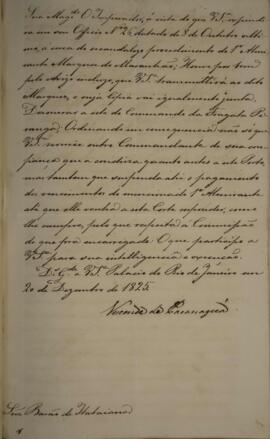 Sua Mag.de O Imperador, á vista do que V.S. expende
no seu Officio Nº 26 datado de 8 de Outubro ultimo,
a cerca do escandalozo procedimento do 1º Almirante
Marquez do Maranhão; Houve por bem
pelo Avizo incluzo, que V.S. transmittirá ao dito
Marquez, e cuja Copia vai igualmente junta,
Demittir a este do Commando da Fragata Piranga;
Ordenando em consequencia não só que
V.S. nomêe outro Commandante de sua confiança
que a conduza quanto antes a este Porto,
mas tambem que suspenda até o pagamento
dos vencimentos do mencionado 1º Almirante
até que elle venha a esta Corte responder, como
lhe cumpre, pelo que respeita á Commissão
de que fora encarregado. O que participo a
V.S. para sua intelligencia e execução.
D.s G.e a V.S. Palacio do Rio de Janeiro em
20 de Dezembro de 1825.
Visconde de Paranaguá
Snr. Barão de Itabaiana